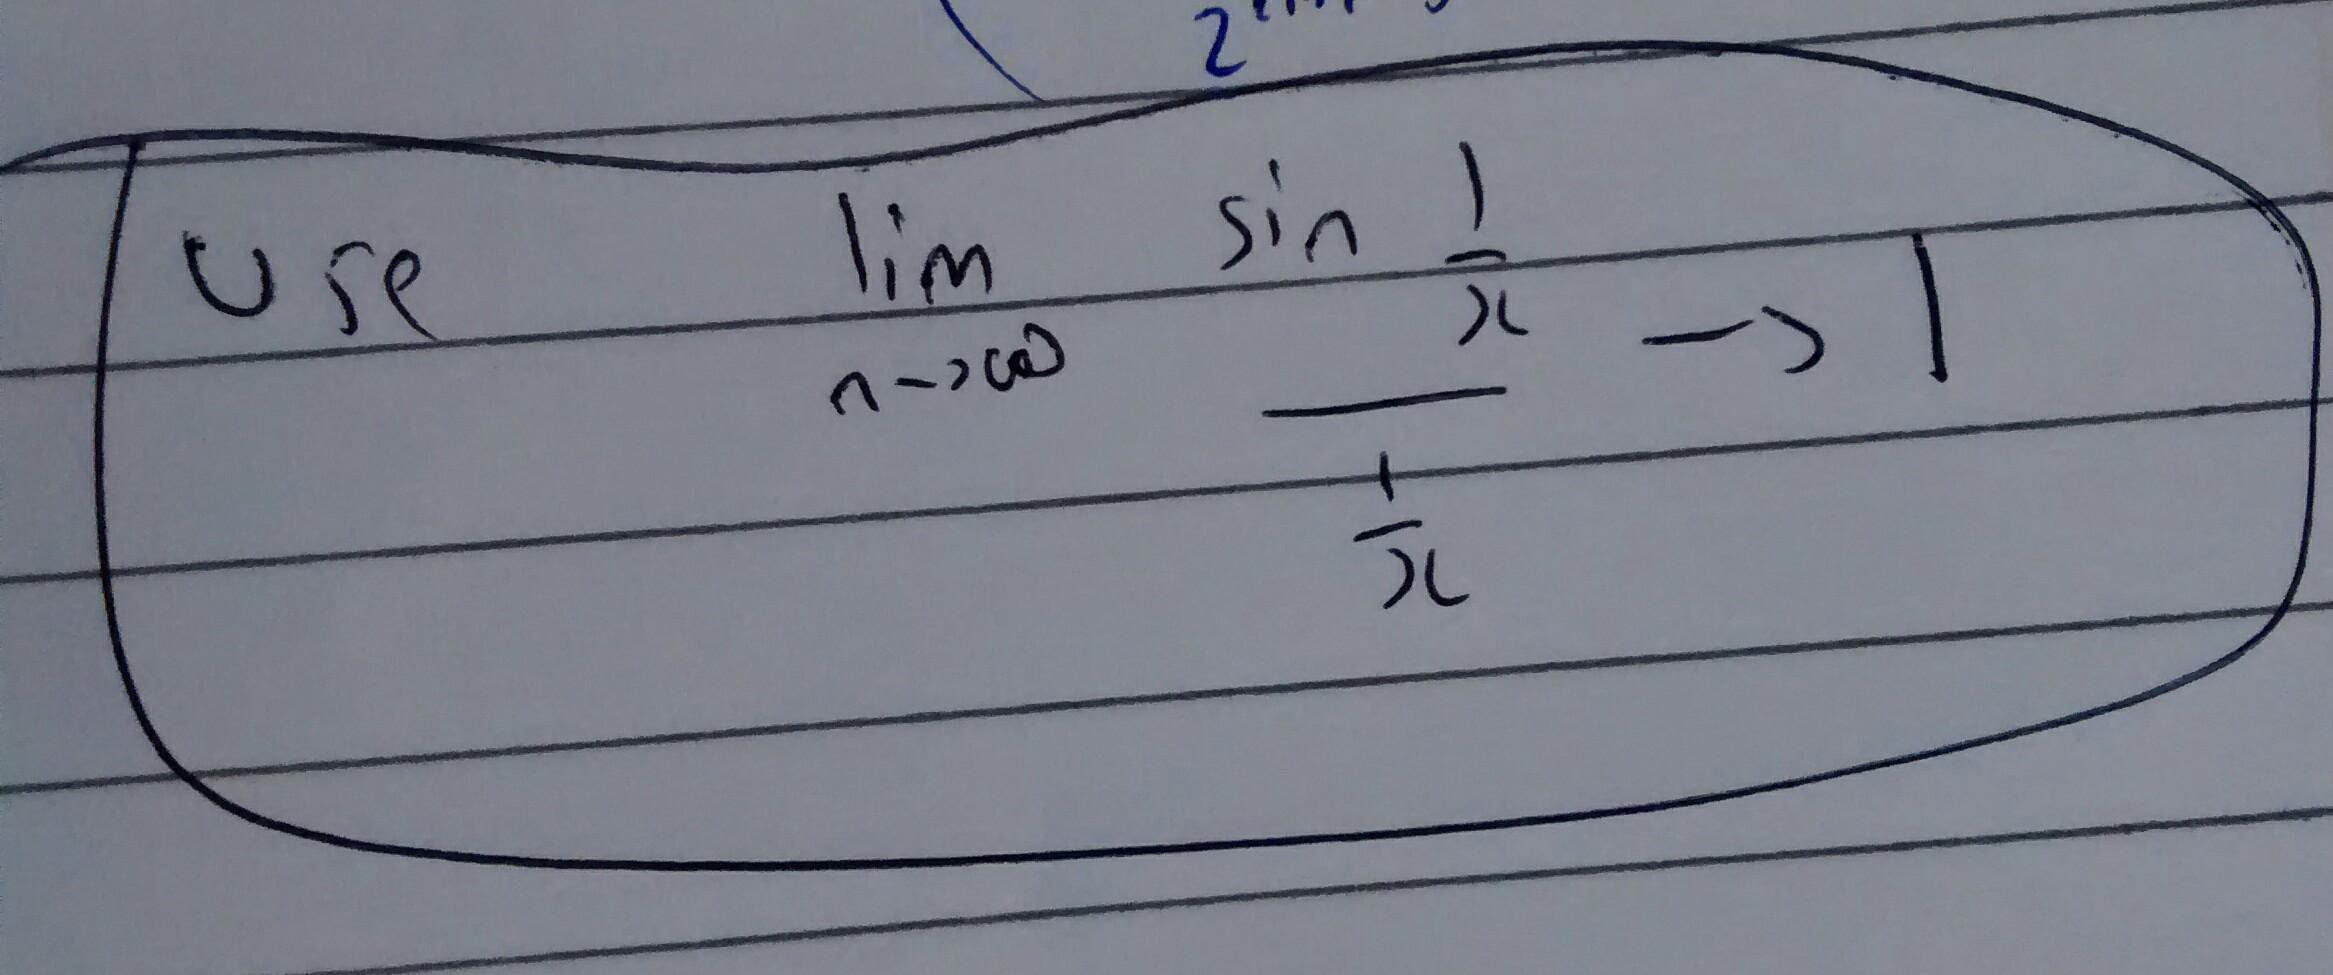 2
Use lim n→∞ (sin 1/x)/(1/x) → 1